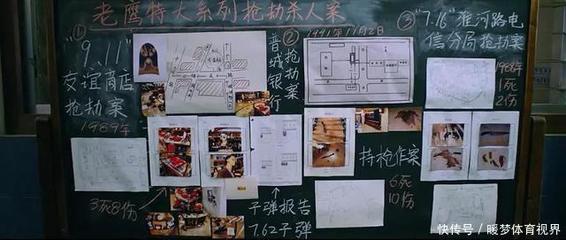 老鹰特大系列抢劫杀人案
①
"9.11"
友谊商店
抢劫案
1989年
3死8伤
②
晋城银行
抢劫案
1991年11月2日
子弹报告
7.62子弹
③"7.16"淮河路电
信分局抢劫案
1986年
1死
2伤
持枪作案
6死
10伤
快传号／暖梦体育视界